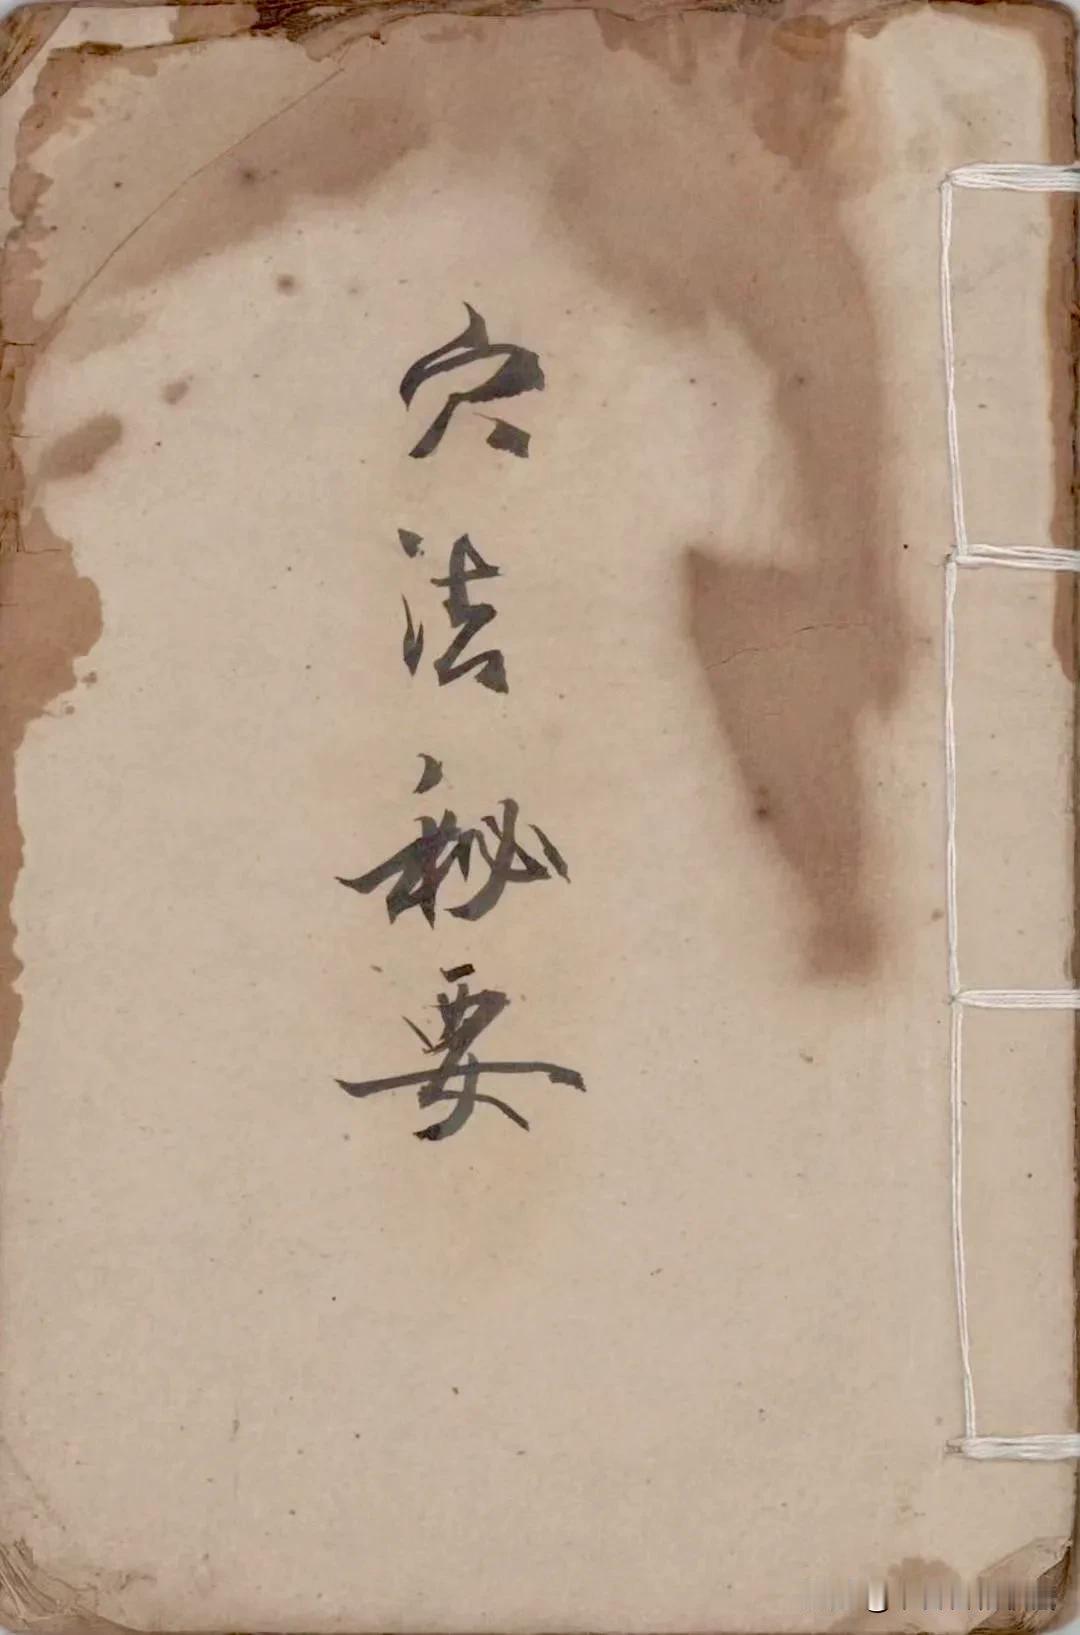 穴法秘要